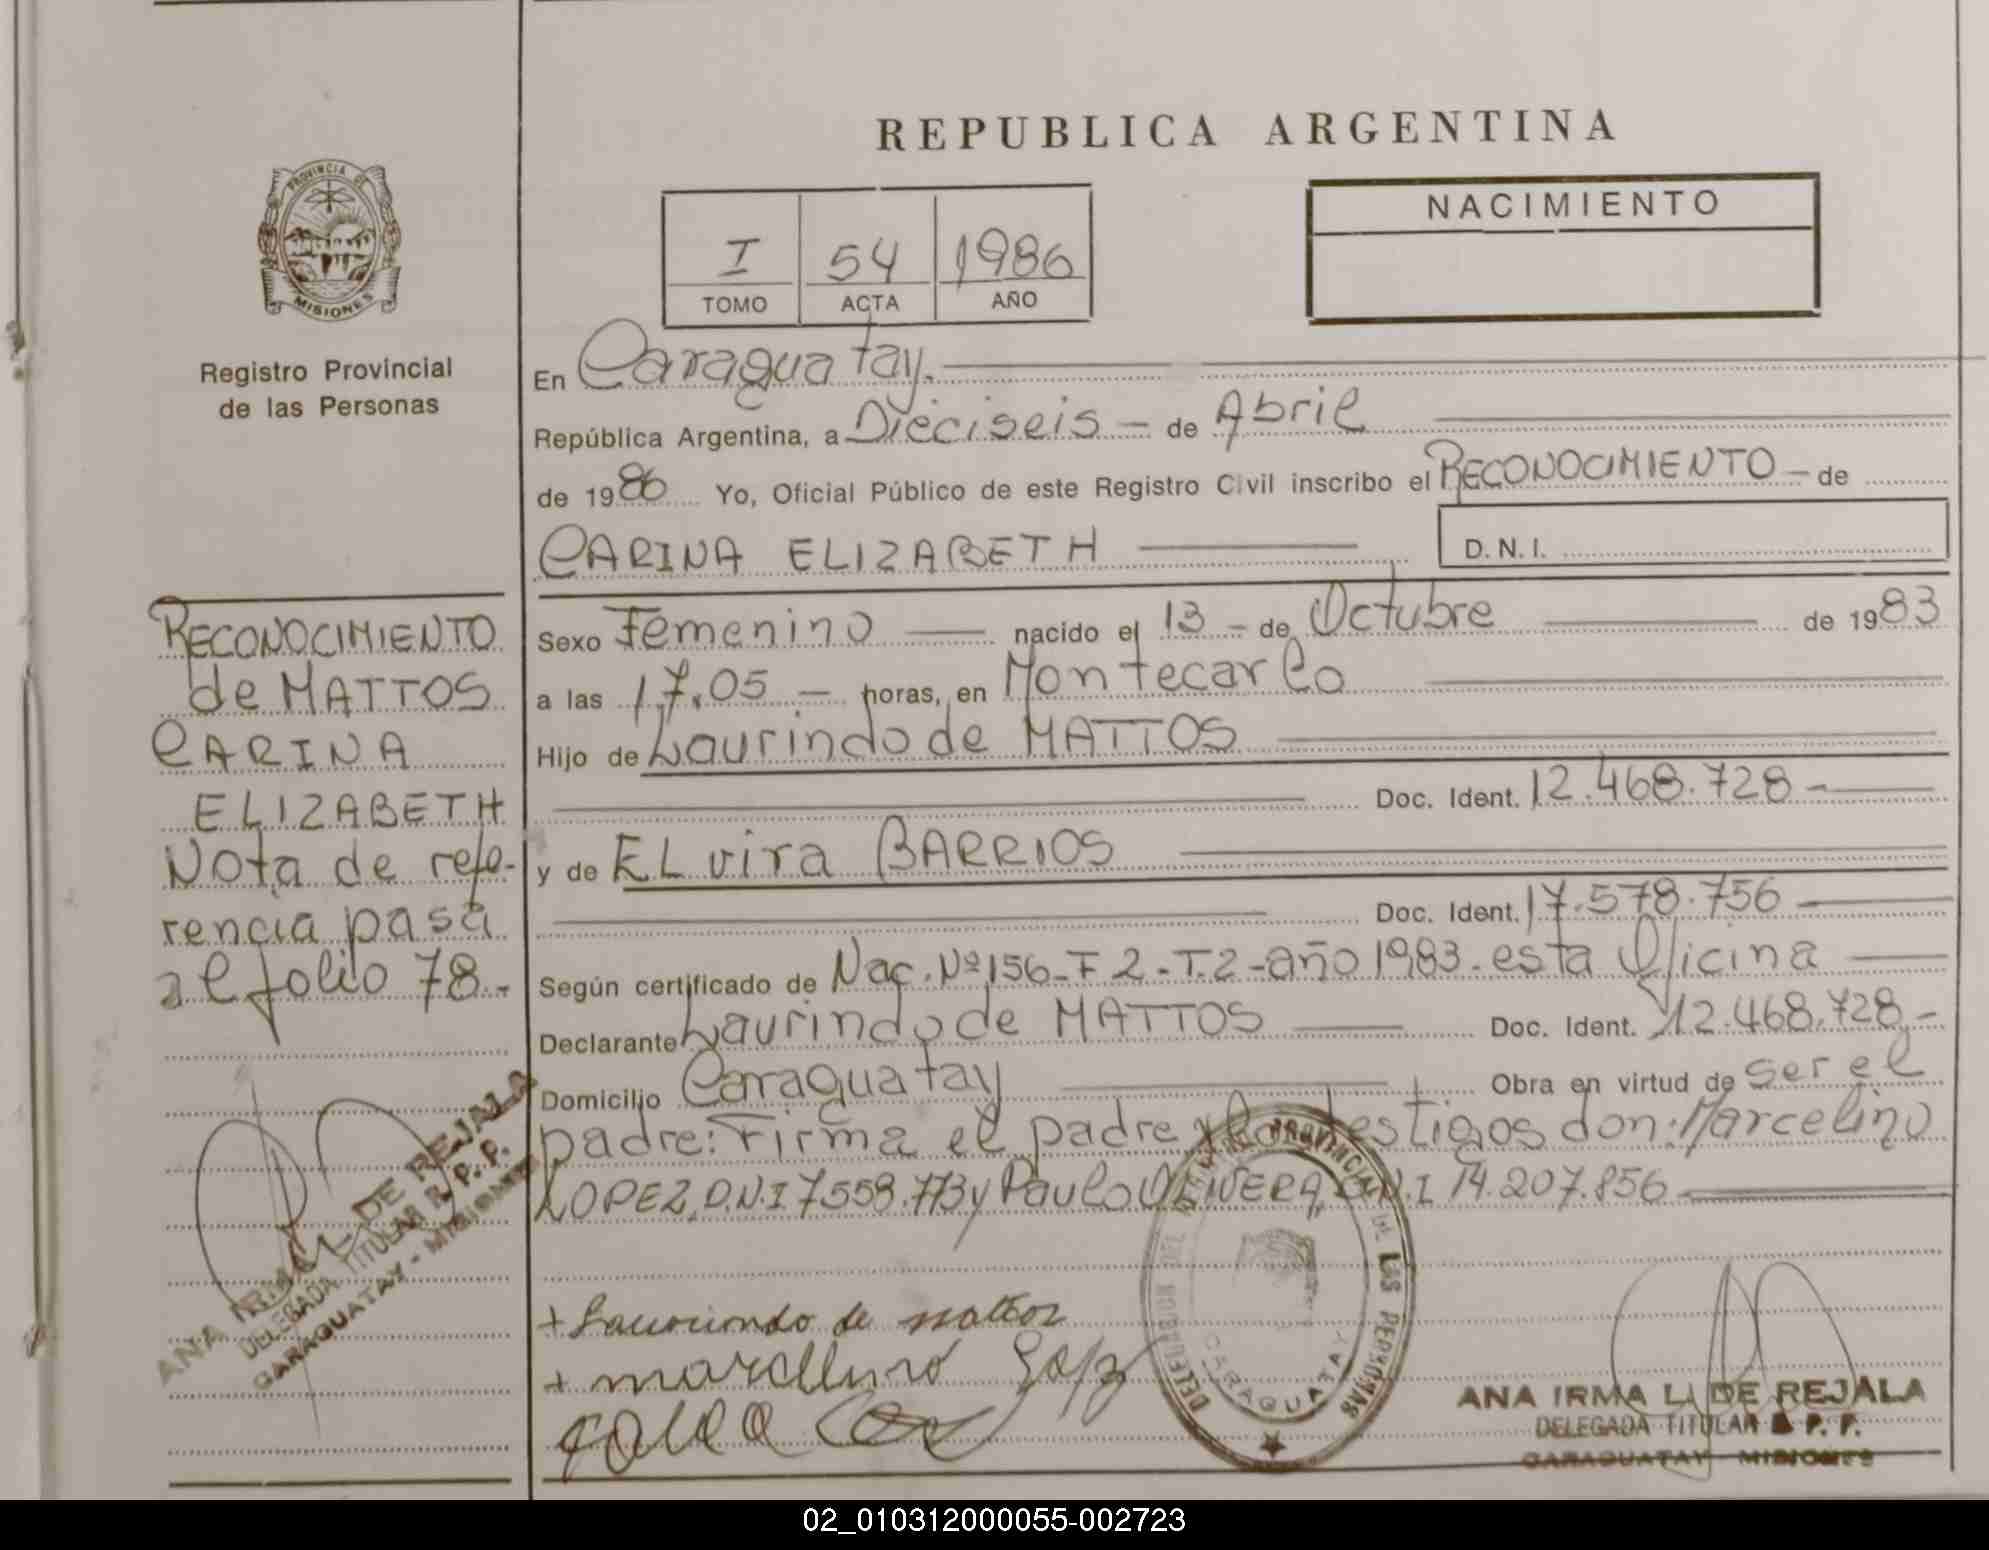 REPUBLICA ARGENTINA
PROVINCIA DE
MISIONES
Registro Provincial
de las Personas
I 54 1986
TOMO ACTA AÑO
NACIMIENTO
En Caraguatay.
República Argentina, a Dieciseis - de Abril
de 1986 Yo, Oficial Público de este Registro Civil inscribo el RECONOCIMIENTO - de
CARINA ELIZABETH
D. N. I.
Sexo Femenino nacido el 13 - de Octubre de 1983
a las 17.05 - horas, en Montecarlo
Hijo de Laurindo de MATTOS
Doc. Ident. 12.468.728 -
y de ELvira BARRIOS
Doc. Ident. 17.578.756
Según certificado de Nac. Nº 156-F 2-T.2-año 1983. esta Oficina
Declarante Laurindo de MATTOS Doc. Ident. 12.468.728.-
Domicilio Caraguatay Obra en virtud de ser el
padre: Firma el padre y los testigos don: Marcelino
LOPEZ, D.N.I 7558.773 y Paulo OLIVERA D.N.I 14.207.856
RECONOCIMIENTO
de MATTOS
CARINA
ELIZABETH
Nota de refe-
rencia pasa
al folio 78.-
ANA IRMA L. DE REJALA
DELEGADA TITULAR R. P. P.
CARAGUATAY - MISIONES
+ Laurindo de mattos
+ marcelino Lopez
PROVINCIAL DE LAS PERSONAS
CARAGUATAY
ANA IRMA L. DE REJALA
DELEGADA TITULAR R. P. P.
CARAGUATAY MISIONES
02_010312000055-002723